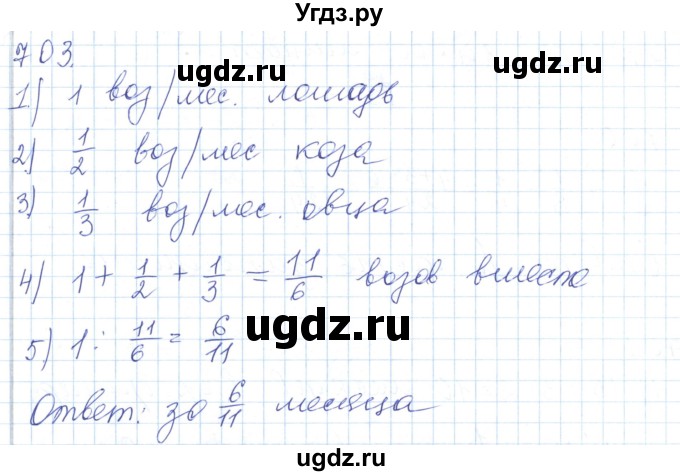 Угдз.ру
703.
ugdz.ru
ugdz.ru
1) 1 воз/мес. лошадь
2) 1/2 воз/мес коза
3) 1/3 воз/мес. овца
ugdz.ru
4) 1 + 1/2 + 1/3 = 11/6 возов вместе
5) 1 : 11/6 = 6/11
ugdz.ru
ugdz.ru
Ответ: за 6/11 месяца
ugdz.ru